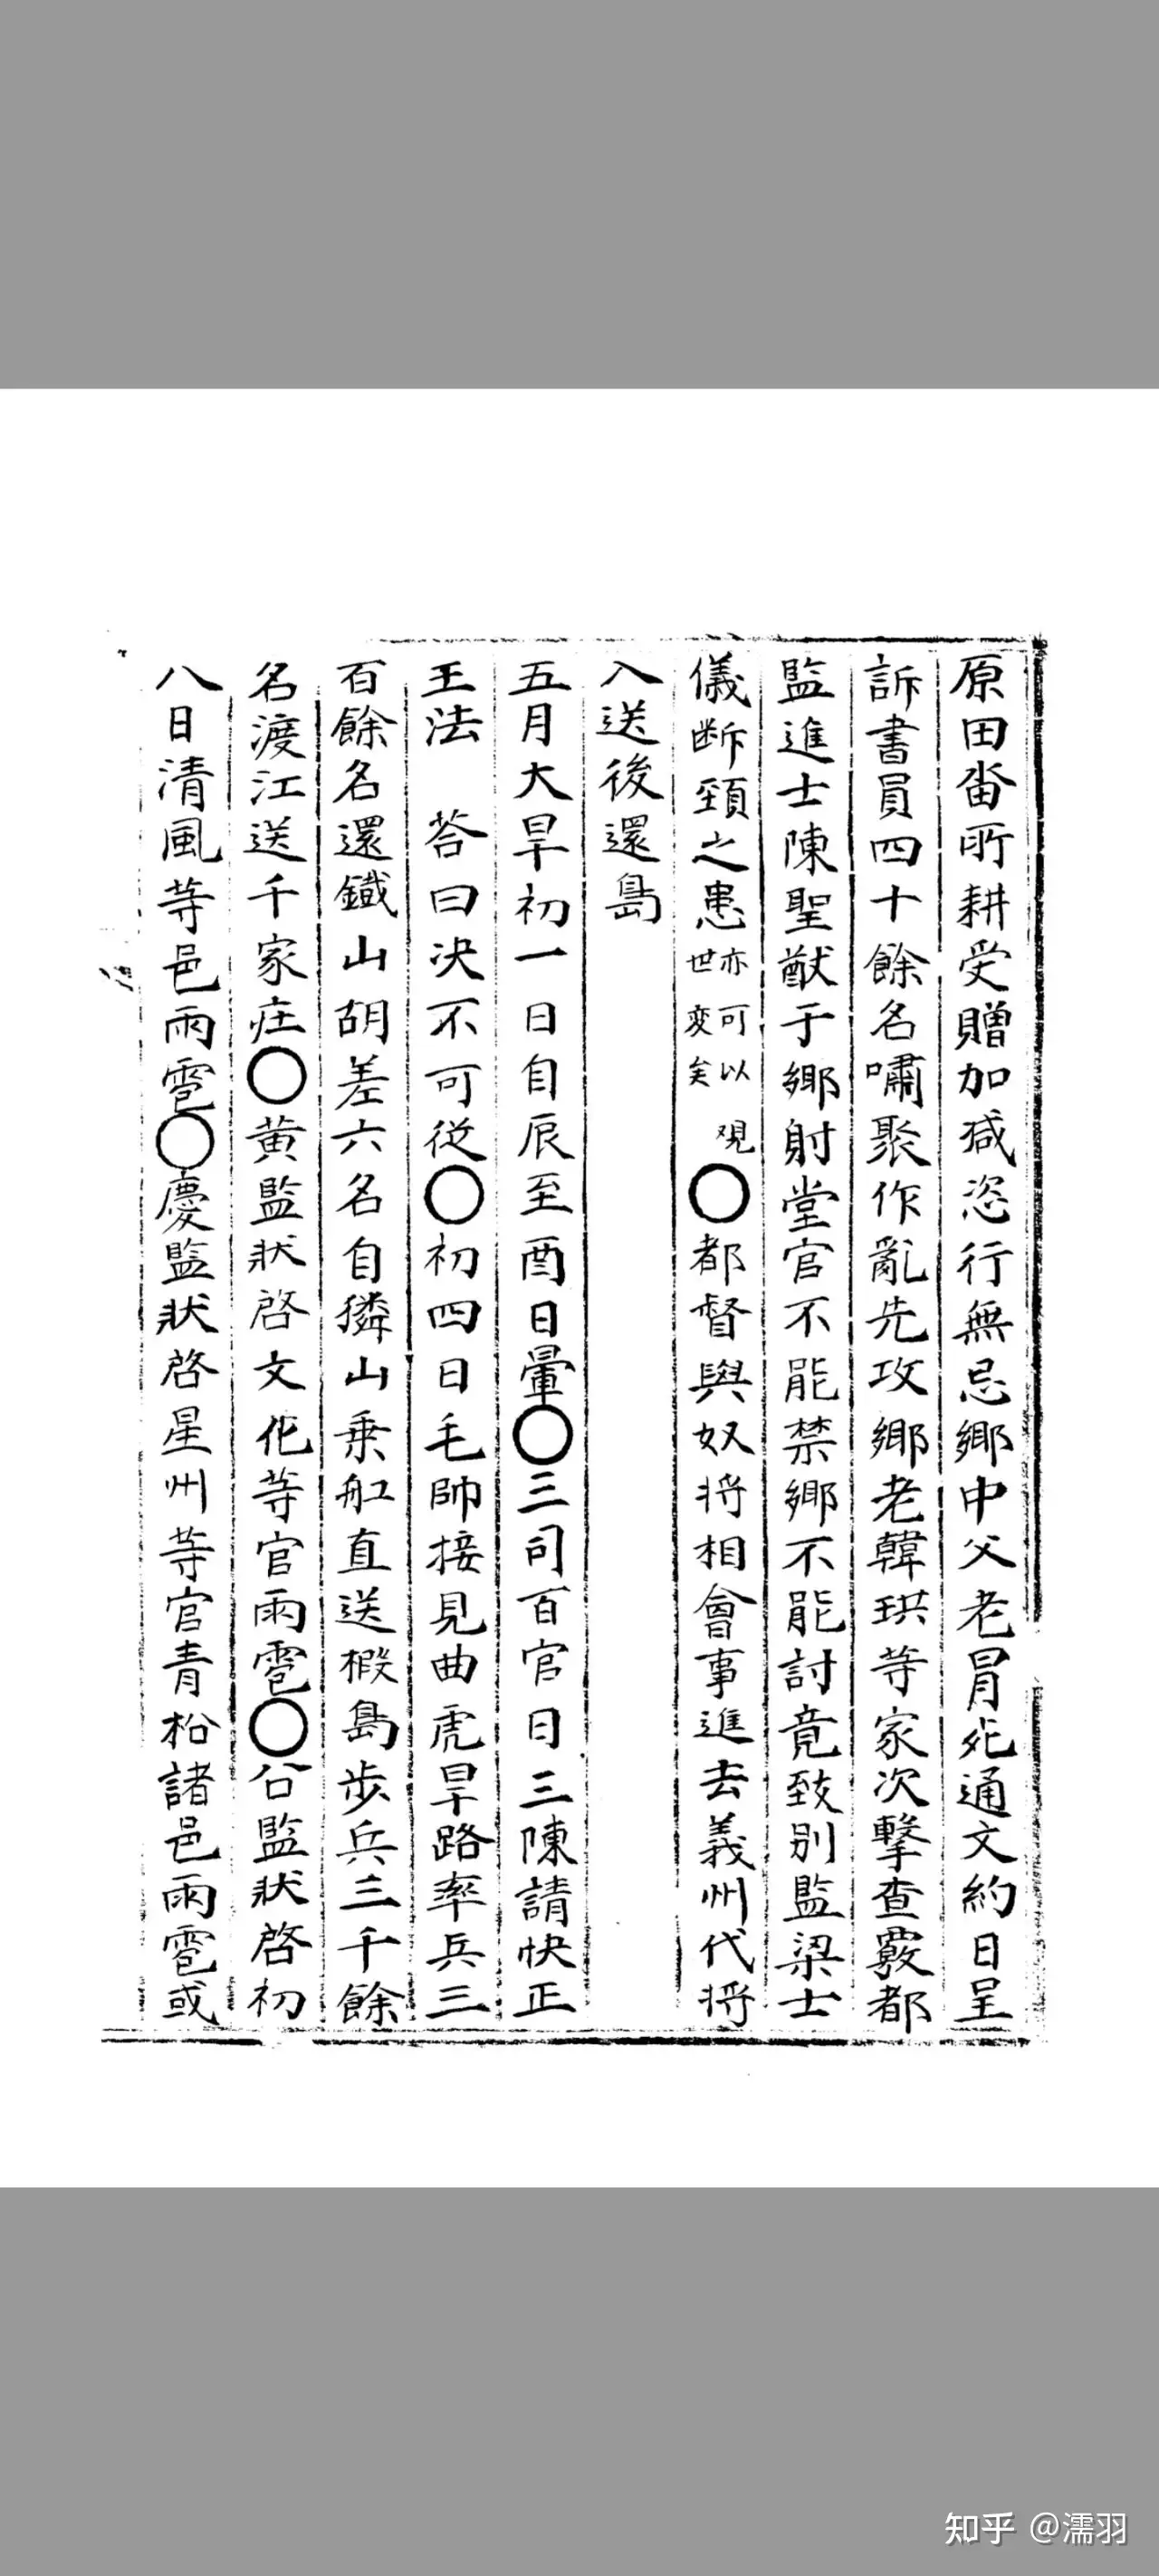 原田畓所耕受贈加减恣行無忌鄉中父老冒死通文約日呈
訴書員四十餘名嘯聚作亂先攻鄉老韓珙等家次擊查覈都
監進士陳聖猷于鄉射堂官不能禁鄉不能討竟致别監梁士
儀断頸之患亦可以観世変矣〇都督與奴将相會事進去義州代将
入送後還島
五月大旱初一日自辰至酉日暈〇三司百官日三陳請快正
王法 荅曰决不可從〇初四日毛帥接見曲虎旱路率兵三
百餘名還鐵山胡差六名自獜山乗舡直送椵島歩兵三千餘
名渡江送千家庄〇黄監狀啓文化等官雨雹〇公監狀啓初
八日清風等邑雨雹〇慶監狀啓星州等官青松諸邑雨雹或
知乎 @濡羽